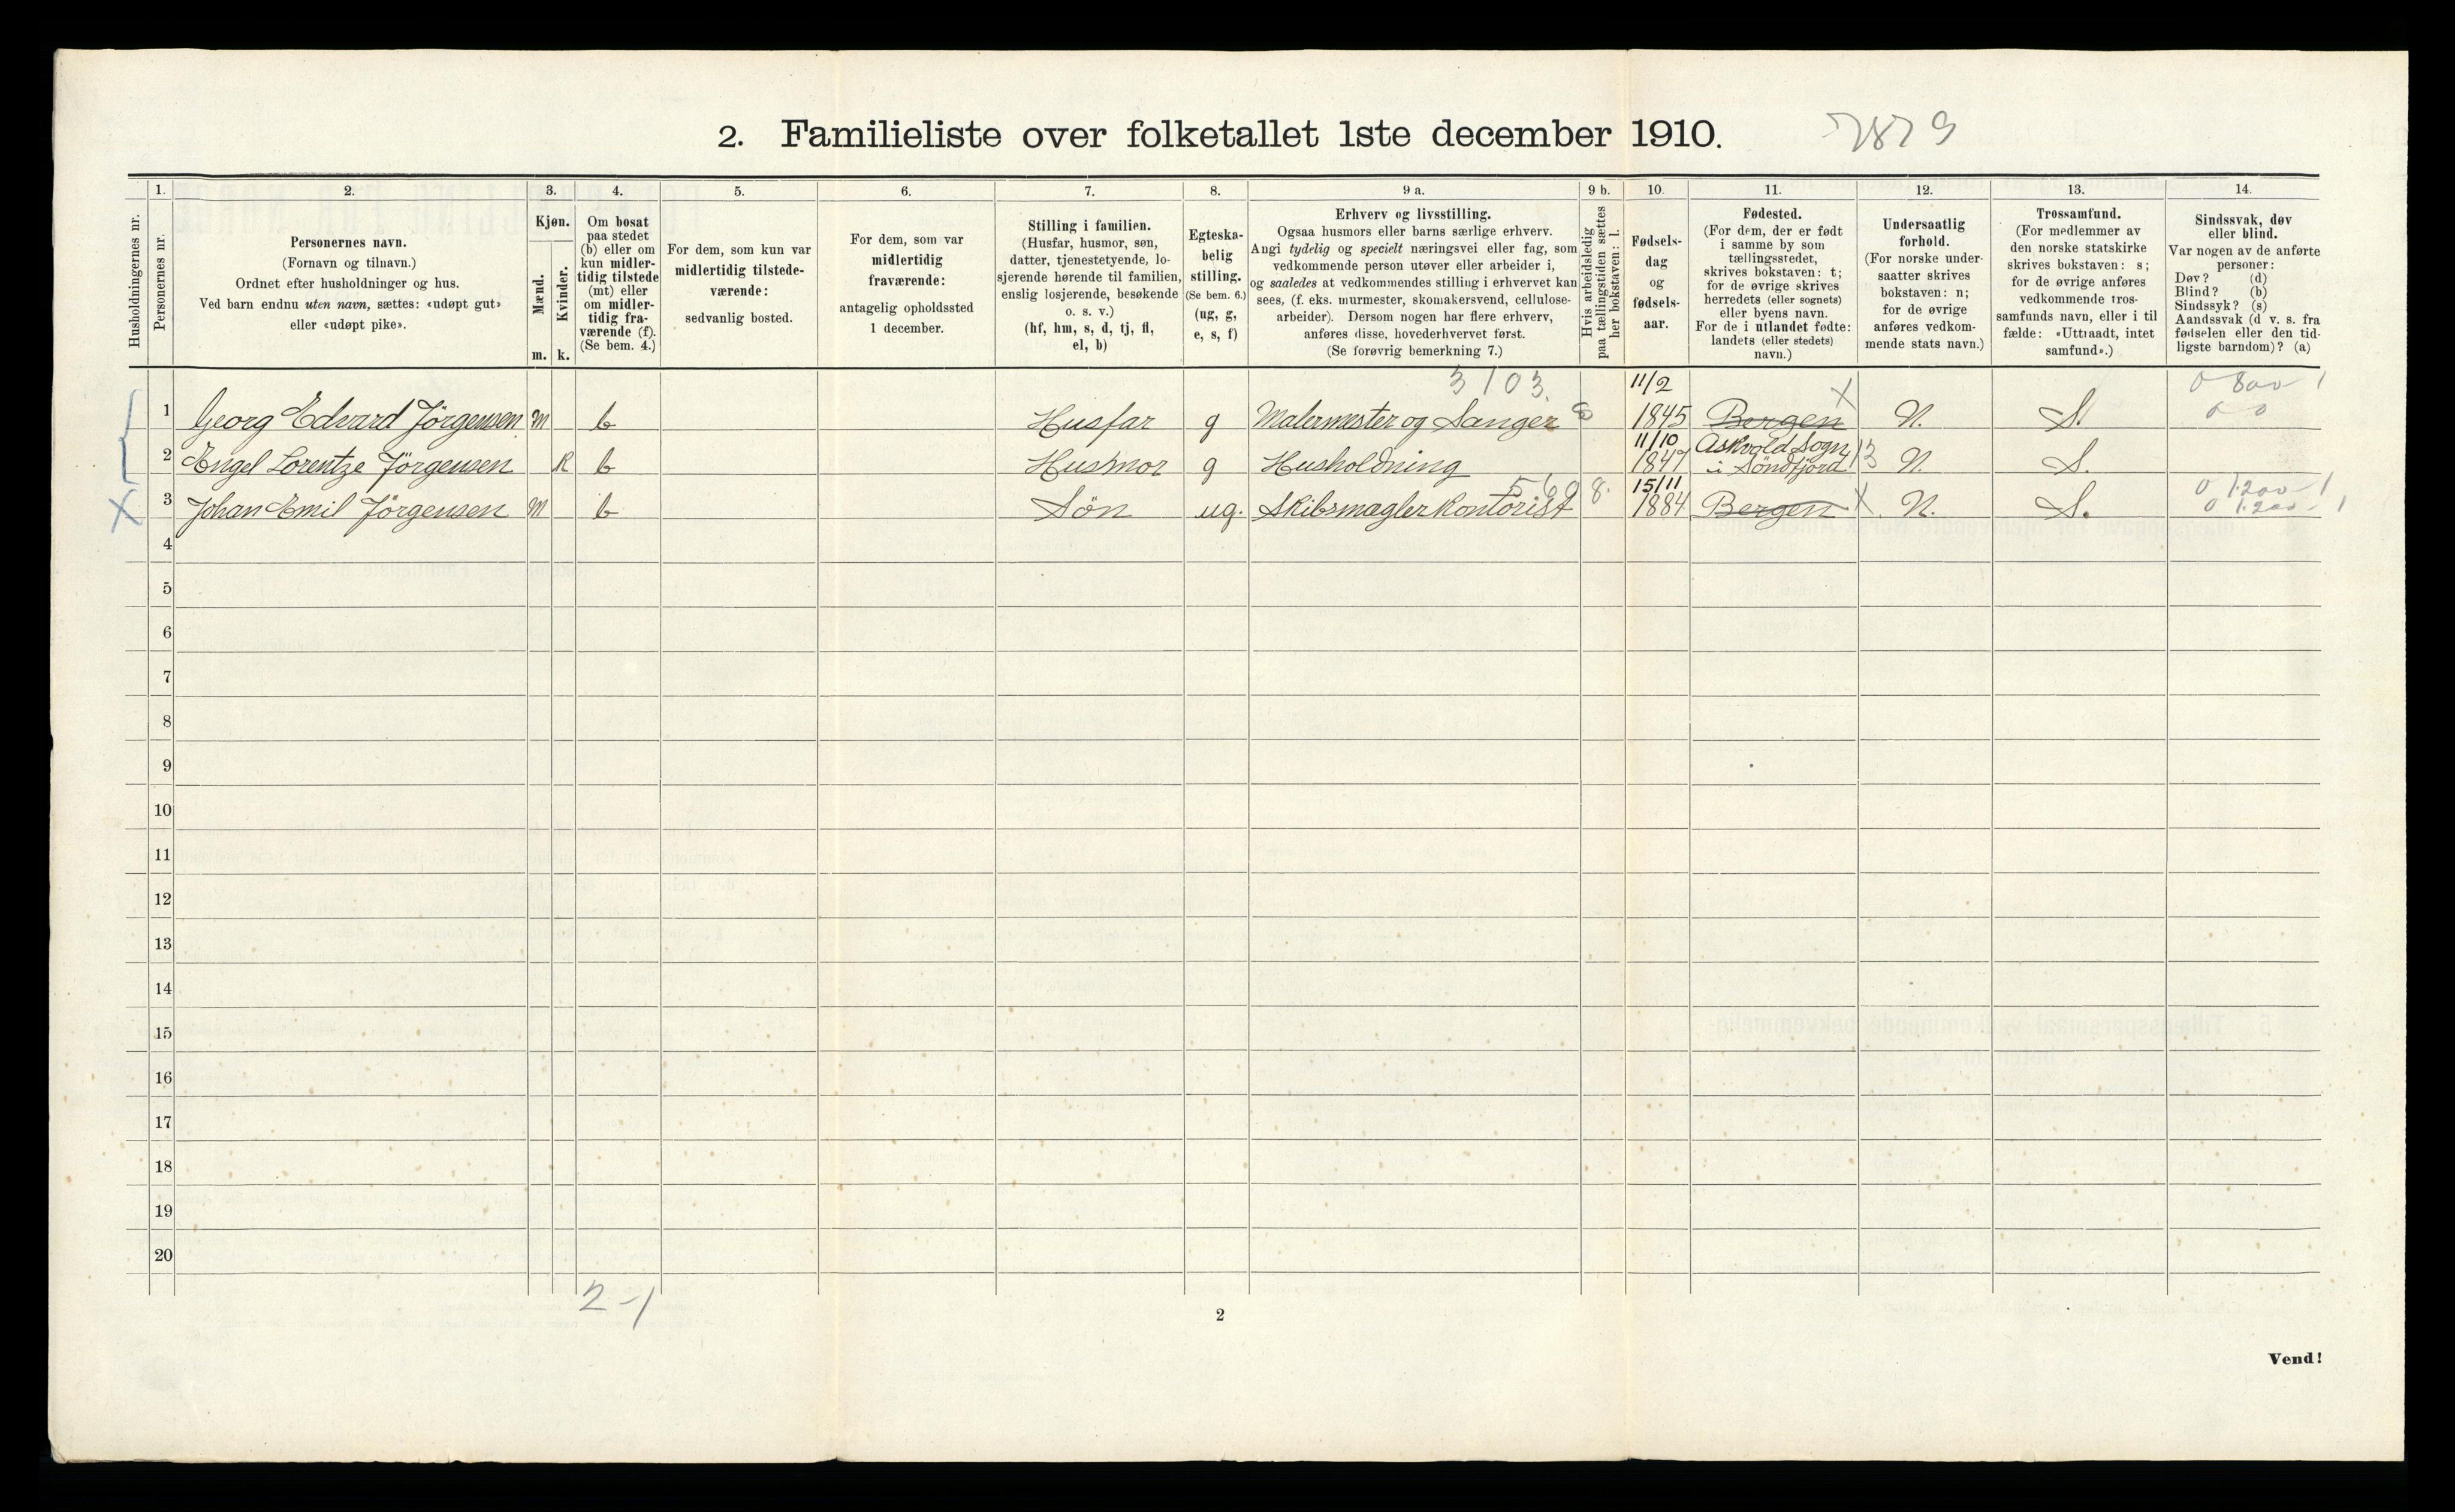 2. Familieliste over folketallet 1ste december 1910.
2879
Husholdningernes nr.
1.
Personernes nr.
2.
Personernes navn.
(Fornavn og tilnavn.)
Ordnet efter husholdninger og hus.
Ved barn endnu uten navn, sættes: «udøpt gut»
eller «udøpt pike».
3.
Kjøn.
Mænd.
m.
Kvinder.
k.
4.
Om bosat
paa stedet
(b) eller om
kun midler-
tidig tilstede
(mt) eller
om midler-
tidig fra-
værende (f).
(Se bem. 4.)
5.
For dem, som kun var
midlertidig tilstede-
værende:
sedvanlig bosted.
6.
For dem, som var
midlertidig
fraværende:
antagelig opholdssted
1 december.
7.
Stilling i familien.
(Husfar, husmor, søn,
datter, tjenestetyende, lo-
sjerende hørende til familien,
enslig losjerende, besøkende
o. s. v.)
(hf, hm, s, d, tj, fl,
el, b)
8.
Egteska-
belig
stilling.
(Se bem. 6.)
(ug, g,
e, s, f)
9 a.
Erhverv og livsstilling.
Ogsaa husmors eller barns særlige erhverv.
Angi tydelig og specielt næringsvei eller fag, som
vedkommende person utøver eller arbeider i,
og saaledes at vedkommendes stilling i erhvervet kan
sees, (f. eks. murmester, skomakersvend, cellulose-
arbeider). Dersom nogen har flere erhverv,
anføres disse, hovederhvervet først.
(Se forøvrig bemerkning 7.)
9 b.
Hvis arbeidsledig
paa tællingstiden sættes
her bokstaven: l.
10.
Fødsels-
dag
og
fødsels-
aar.
11.
Fødested.
(For dem, der er født
i samme by som
tællingsstedet,
skrives bokstaven: t;
for de øvrige skrives
herredets (eller sognets)
eller byens navn.
For de i utlandet fødte:
landets (eller stedets)
navn.)
12.
Undersaatlig
forhold.
(For norske under-
saatter skrives
bokstaven: n;
for de øvrige
anføres vedkom-
mende stats navn.)
13.
Trossamfund.
(For medlemmer av
den norske statskirke
skrives bokstaven: s;
for de øvrige anføres
vedkommende tros-
samfunds navn, eller i til
fælde: «Uttraadt, intet
samfund».)
14.
Sindssvak, døv
eller blind.
Var nogen av de anførte
personer:
Døv? (d)
Blind? (b)
Sindssyk? (s)
Aandssvak (d v. s. fra
fødselen eller den tid-
ligste barndom)? (a)
3103. 11/2 X 0 800 1
1 Georg Edvard Jørgensen m b Husfar g Malermester og Sanger 1845 Bergen N. S. 0 0
11/10 Askvold Sogn
2 Engel Lorentze Jørgensen K b Husmor g Husholdning 1847 i Söndfjord 13 N. S.
560 8. 15/11 0 1200 1
X 3 Johan Emil Jørgensen m b Søn ug. Skibsmaglerkontorist 1884 Bergen X N. S. 0 1.200 1
4
5
6
7
8
9
10
11
12
13
14
15
16
17
18
19
20
2-1
2
Vend!